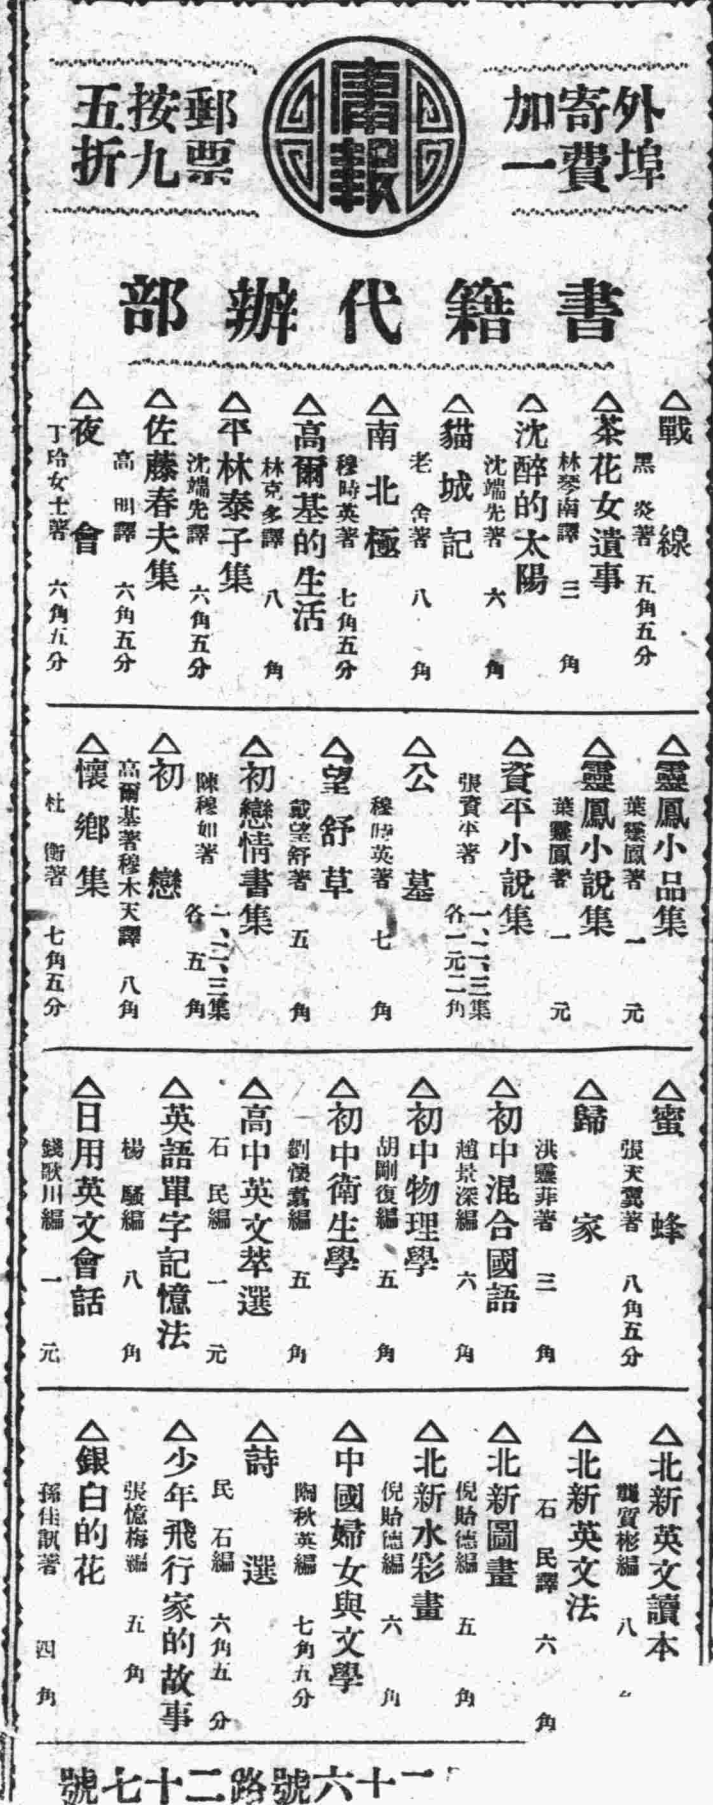 外埠
寄費
加一
庸報
郵票
按九
五折
書籍代辦部
△戰線
黑炎著 五角五分
△茶花女遺事
林琴南譯 三角
△沈醉的太陽
沈端先著 六角
△貓城記
老舍著 八角
△南北極
穆時英著 七角五分
△高爾基的生活
林克多譯 八角
△平林泰子集
沈端先譯 六角五分
△佐藤春夫集
高明譯 六角五分
△夜會
丁玲女士著 六角五分
△靈鳳小品集
葉靈鳳著 一元
△靈鳳小說集
葉靈鳳著 一元
△資平小說集
張資平著 一、二、三集
各一元二角
△公墓
穆時英著 七角
△望舒草
戴望舒著 五角
△初戀情書集
陳穆如著 一、二、三集
各五角
△初戀
高爾基著穆木天譯 八角
△懷鄉集
杜衡著 七角五分
△蜜蜂
張天翼著 八角五分
△歸家
洪靈菲著 三角
△初中混合國語
趙景深編 六角
△初中物理學
胡剛復編 五角
△初中衛生學
劉懷翥編 五角
△高中英文萃選
石民編 一元
△英語單字記憶法
楊騷編 八角
△日用英文會話
錢歌川編 一元
△北新英文讀本
龔質彬編 八
△北新英文法
石民譯 六角
△北新圖畫
倪貽德編 五角
△北新水彩畫
倪貽德編 六角
△中國婦女與文學
陶秋英編 七角五分
△詩選
民石編 六角五分
△少年飛行家的故事
張憶梅編 五角
△銀白的花
孫佳訊著 四角
二十六號路二十七號